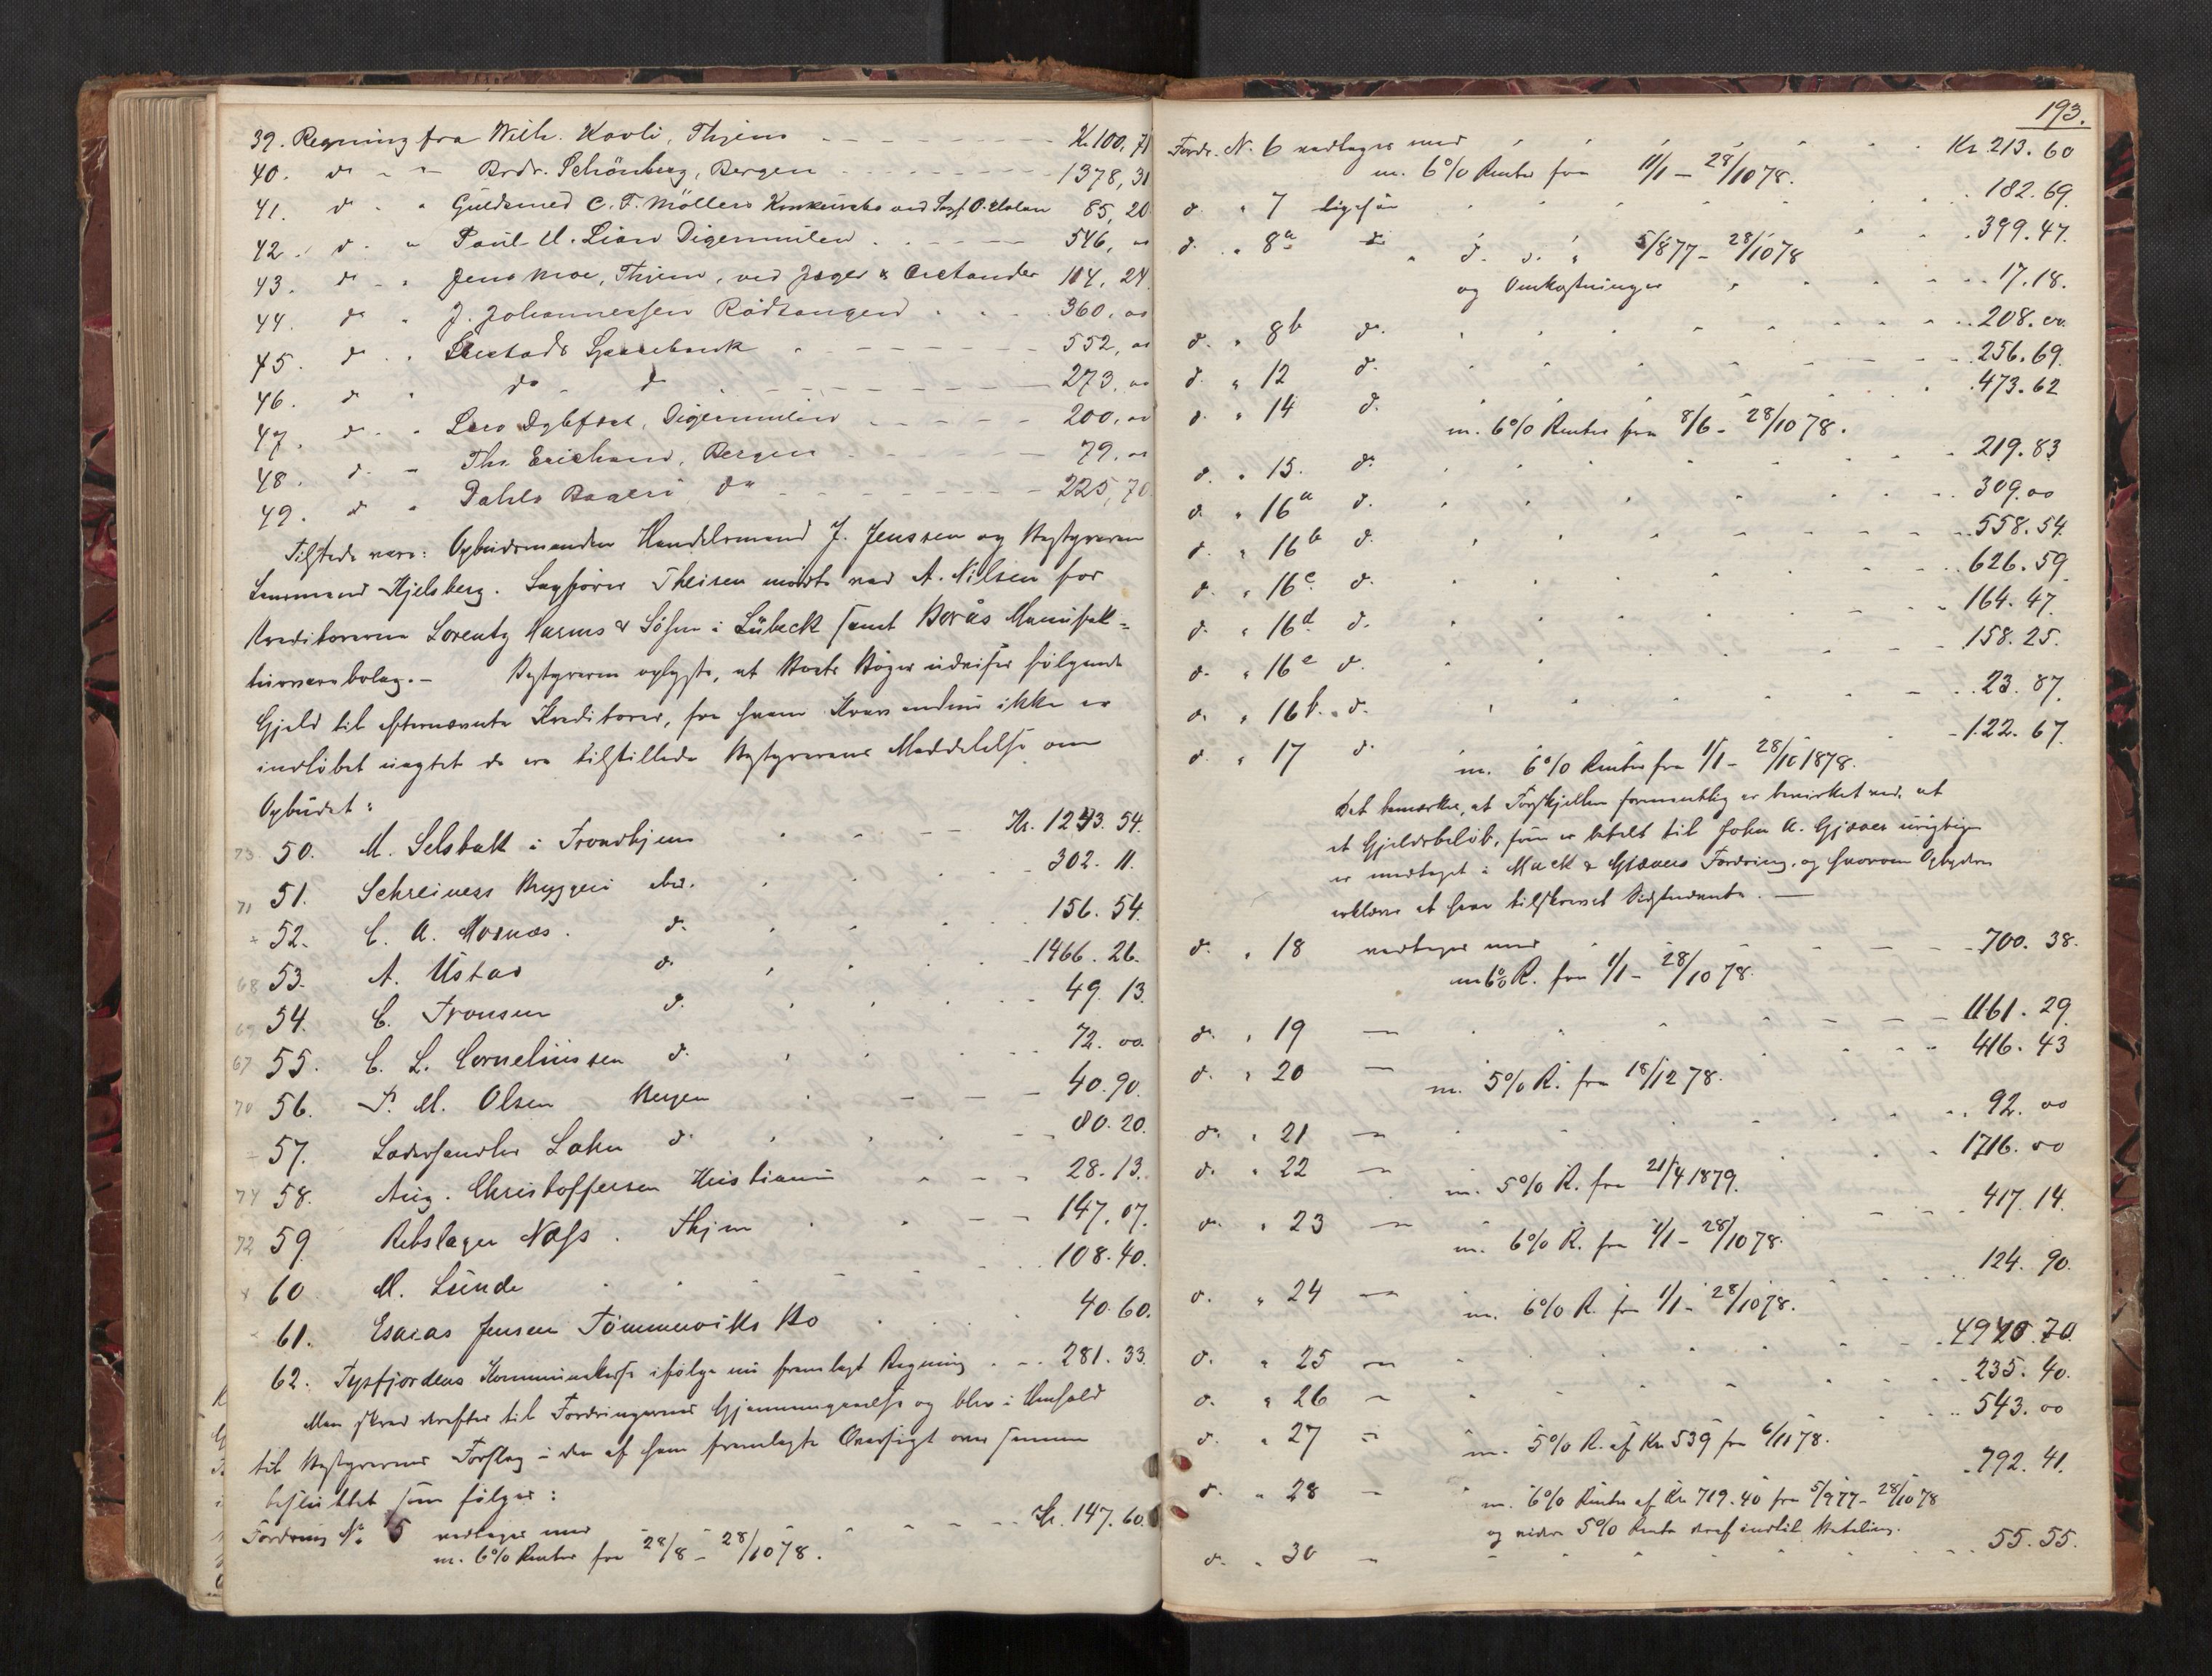 39. Regning fra Wilh. Kavli, Thjem - - - - Kr 100,71
40. do - - Brdr. Schönberg, Bergen - - - - 1378,31
41. do - - Guldsmed C. F. Möllers Konkursbo ved Sagf. O. 85,20
42. do - - Paul U. Lian Digermulen - - - 546, 00
43. do - - Jens Moe, Thjem, ved Jæger & Arctander 104,24
44. do - J. Johannessen Rödsangen - - - 360,00
45. do - - Sparebank - - - 552, 00
46. do - do - do - - - 273, 00
47. do - - Digermulen - - - 200, 00
48. do - Ths. Erichsen, Bergen - - - 79, 00
49. do - Dahls Bageri do - - - 225,70
Tilstede vare: Opbudsmanden Handelsmand J. Jenssen og Bestyreren
Lensmand Kjelsberg. Sagförer Theisen mødte ved A. Nilsen for
Kreditorerne Lorentz Harms & Söhne i Lübeck samt Borås Manufak-
turvarebolag. - Bestyreren oplyste, at Boets Böger udviser fölgende
Gjeld til efternævnte Kreditorer, fra hvem Krav endnu ikke er
indlöbet uagtet de ere tilstillede Bestyrerens Meddelelse om
Opbudet:
73 50. M. Selsbak i Trondhjem - - - Kr. 1243. 54.
71 51. Schreiners Bryggeri ibid. - - - 302. 11.
+ 52. C. A. Moxnæs. do. - - - 156. 54.
68 53. A. Ustad do. - - - 1466. 26.
69 54. C. Tronsen do. - - - 49. 13.
67 55. C. L. Corneliussen do. - - - 72. 00.
70 56. P. M. Olsen Bergen - - - 40. 90.
+ 57. Læderhandler Lahn do. - - - 80. 20.
74 58. Aug. Christoffersen Kristiania - - - 28. 13.
72 59. Rebslager Næss. Thjem - - - 147. 07.
+ 60 M. Lunde - - - 108. 40.
+ 61. Esaias Jensen Tömmerviks Bo - - - 40. 60.
62. Tysfjordens Kommunekasse ifölge nu fremlagt Regning - - 281. 33.
Man skred derefter til Fordringernes Gjennemgaaelse og blev i Henhold
til Bestyrerens Forslag i den af ham fremlagte Oversigt over samme
besluttet som fölger:
Fordring No 5 vedtages med - - - Kr. 147. 60.
m. 6% Renter fra 28/8 - 28/10 78.
193.
Fordr. N. 6 vedtages med - - - Kr. 213. 60
m. 6% Renter fra 11/1 - 28/10 78.
d. " 7 ligesaa - - - 182. 69.
d. " 8a d. " d. d. " 5/8 77 - 28/10 78 - - 399. 47.
og Omkostninger - - - 17. 18.
d. " 8b d. - - - 208. 00.
d. " 12 d. - - - 256. 69.
d. " 14 d. - - - 473. 62
m. 6% Renter fra 8/6 - 28/10 78.
d. " 15. d. - - - 219. 83
d. " 16a d. - - - 309. 00
d. " 16b d. - - - 558. 54.
d. " 16c d. - - - 626. 59.
d. " 16d d. - - - 164. 47.
d. " 16e d. - - - 158. 25.
d. " 16f. d. - - - 23. 87.
d. " 17 d. - - - 122. 67.
m. 6% Renter fra 1/1 - 28/10 1878.
Det bemærkes, at Forskjellen formentlig er bevirket ved, at
et Gjeldsbelöb, som er betalt til John A. Gjæver urigtig
er medtaget i Mack & Gjævers Fordring, og hvorom Opbyderen
erklærer at have tilskrevet Vedkommende. -
d. " 18 vedtages med - - - 700. 38.
m 6% R. fra 1/1 - 28/10 78.
d. " 19 - - - - 1161. 29.
d. " 20 - - - - 416. 43
m. 5% R. fra 18/12 78.
d. " 21 - - - - 92. 00
d. " 22 - - - - 1716. 00
m. 5% R. fra 21/4 1879.
d. " 23 - - - - 417. 14.
m. 6% R. fra 1/1 - 28/10 78.
d. " 24 - - - - 124. 90.
m. 6% R. fra 1/1 - 28/10 78.
d. " 25 - - - - 4920. 70.
d. " 26 - - - - 235. 40.
d. " 27 - - - - 543. 00
m. 5% R. af Kr 539 fra 6/11 78.
d. " 28 - - - - 792. 41.
m. 6% Renter af Kr 719. 40 fra 5/9 77 - 28/10 78
og videre 5% Rente deraf indtil Betaling.
d. " 30 - - - - 55. 55.